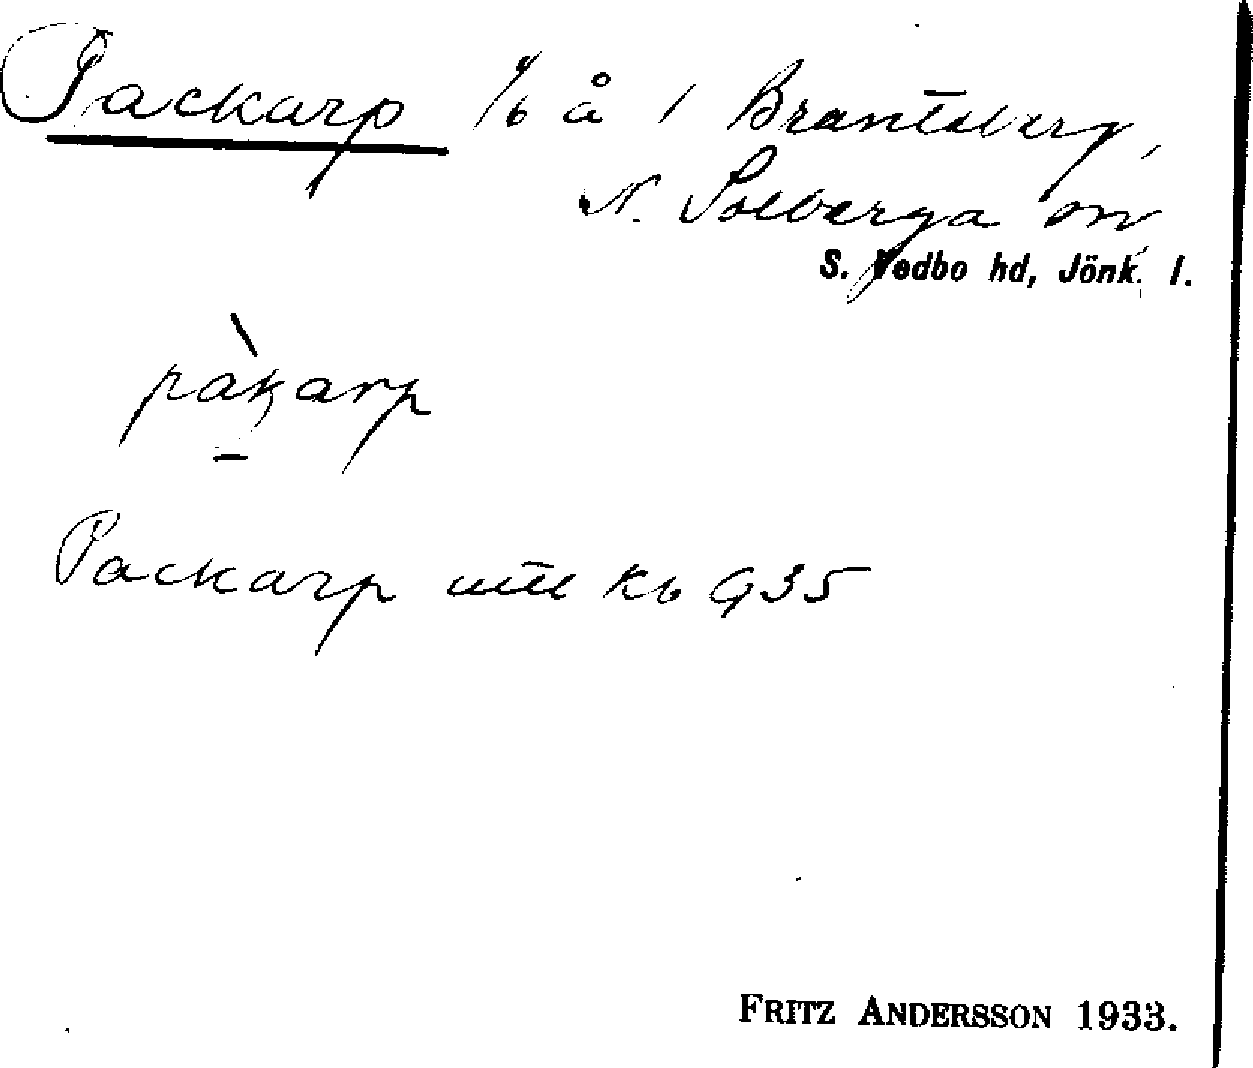 Packarp % å 1 Brantsberg,
N. Solberga sn
S. Vedbo hd, Jönk. l.
pàkarp
Packarp utt Kb G35
FRITZ ANDERSSON 1933.